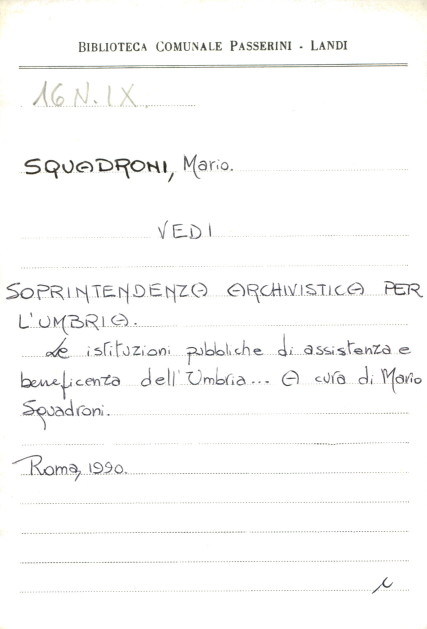 BIBLIOTECA COMUNALE PASSERINI - LANDI
16 N. IX.
SQUADRONI, Mario.
VEDI
SOPRINTENDENZA ARCHIVISTICA PER
L'UMBRIA.
Le istituzioni pubbliche di assistenza e
beneficenza dell'Umbria... A cura di Mario
Squadroni.
Roma, 1990.